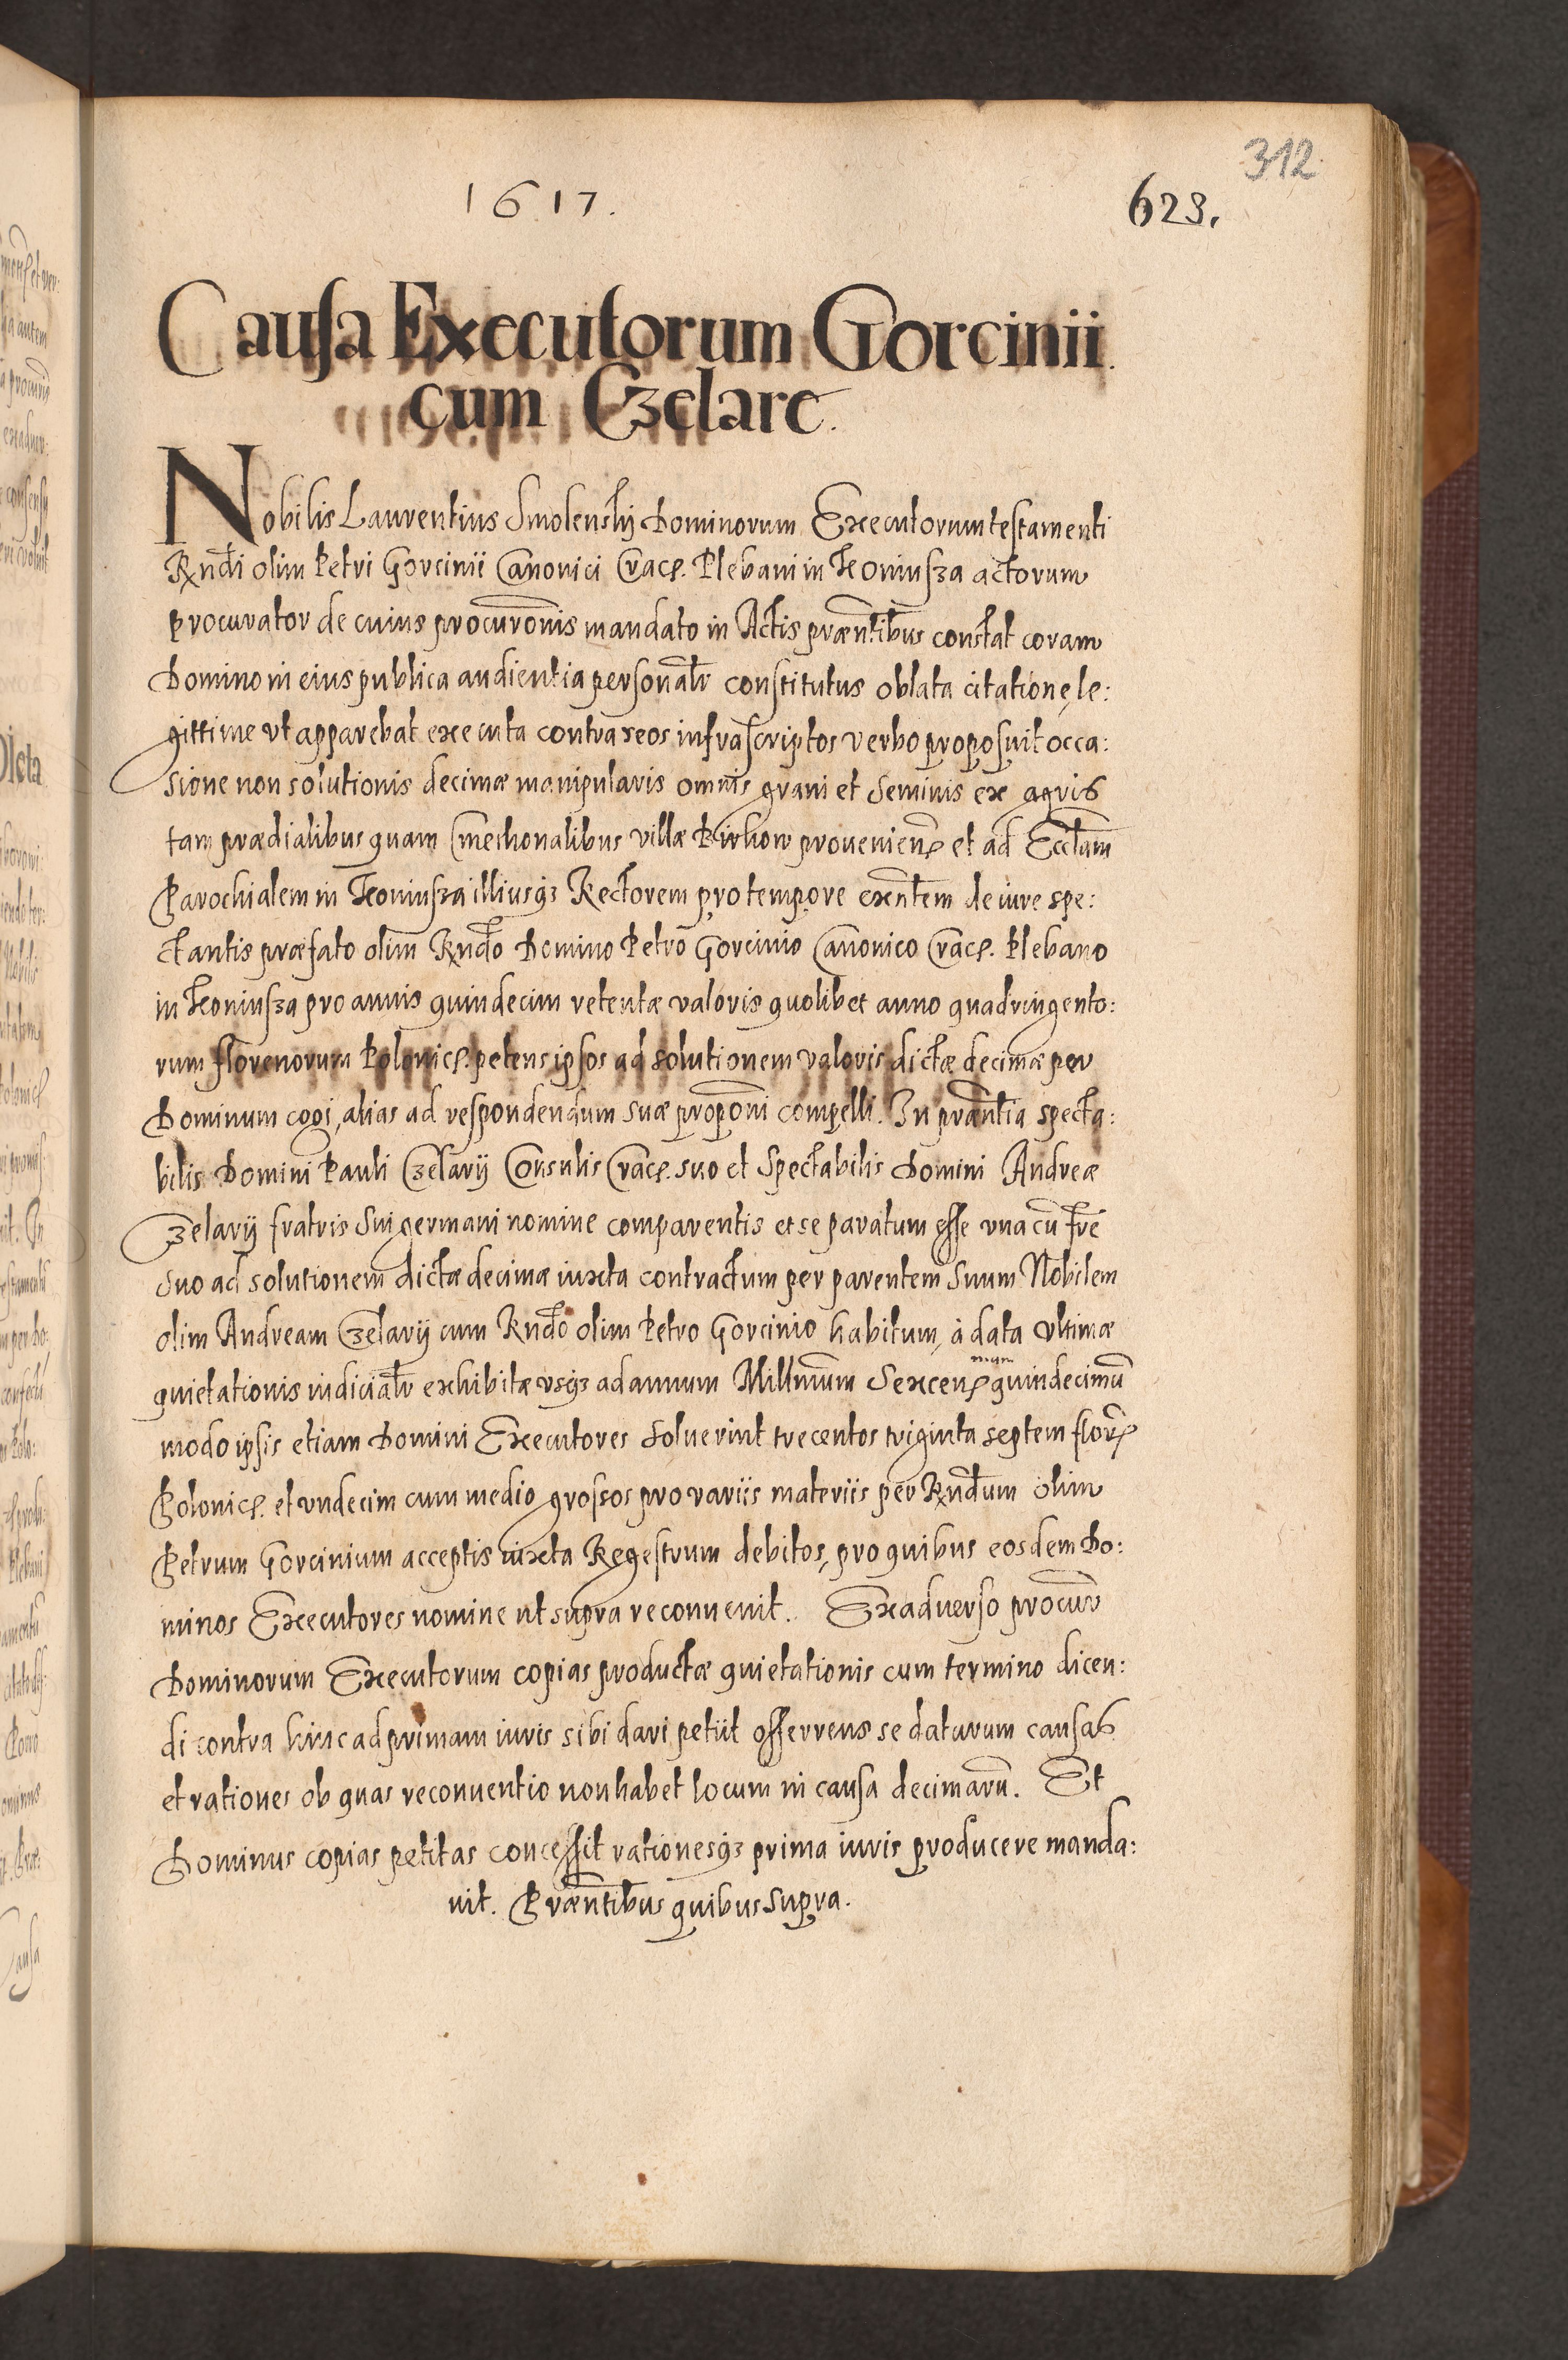 312
1617.
623.
Causa Executorum Gorcinii
cum Czelare.
Nobilis Laurentius Smolenskij Dominorum Executorum testamenti
Rndi olim Petri Gorcinii Canonici Crac. Plebani in Koniusza actorum
procurator de cuius procuronis mandato in Actis præntibus constat coram
Domino in eius publica audientia personalr constitutus oblata citatione, le:
gittime vt apparebat executa contra reos infrascriptos verbo proposuit occa:
sione non solutionis decimæ manipularis omnis grani et seminis ex agris
tam prædialibus quam Cmethonalibus villæ Pirkow prouenien. et ad Ecclam
Parochialem in Koniusza illiusq3 Rectorem pro tempore exntem de iure spe:
ctantis præfato olim Rndo Domino Petro Gorcinio Canonico Crac. Plebano
in Koniusza pro annis quindecim retentæ valoris quolibet anno quadringento:
rum florenorum Polonic. petens ipsos ad solutionem valoris dictæ decimæ per
Dominum cogi, alias ad respondendum suæ proponi compelli. In præntia specta:
bilis Domini Pauli Czelarij Consulis Crac. suo et Spectabilis Domini Andreæ
Czelarij fratris sui germani nomine comparentis et se paratum esse vna cū fre
suo ad solutionem dictæ decimæ iuxta contractum per parentem suum Nobilem
olim Andream Czelarij cum Rndo olim Petro Gorcinio habitum, à data vltimæ
quietationis iudicialr exhibitæ vsq3 ad annum Millmum Sexcen. mum quindecimū
modo ipsis etiam Domini Executores soluerint trecentos triginta septem flor.
Polonic. et vndecim cum medio grossos pro variis materiis per Rndum olim
Petrum Gorcinium acceptis iuxta Regestrum debitos, pro quibus eosdem Do:
minos Executores nomine ut supra reconuenit. Ex aduerso procur
Dominorum Executorum copias productæ quietationis cum termino dicen:
di contra hinc ad primam iuris sibi dari petiit offerrens se daturum causas
et rationes ob quas reconuentio non habet locum in causa decimarū. Et
Dominus copias petitas concessit rationesq3 prima iuris producere manda:
uit. Præntibus quibus supra.